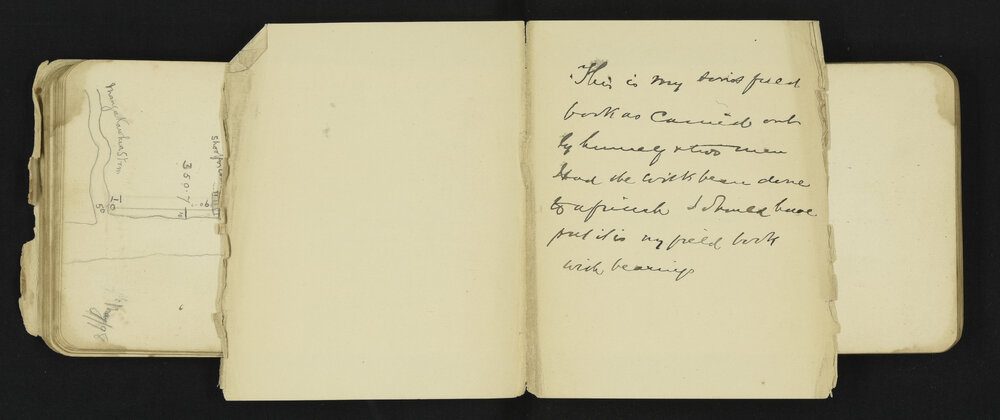 This is my          field
book as Carried out
by himself & two men
Had the work been done
to a finish I should have
put it in my field book
with bearings
350.7
50
10